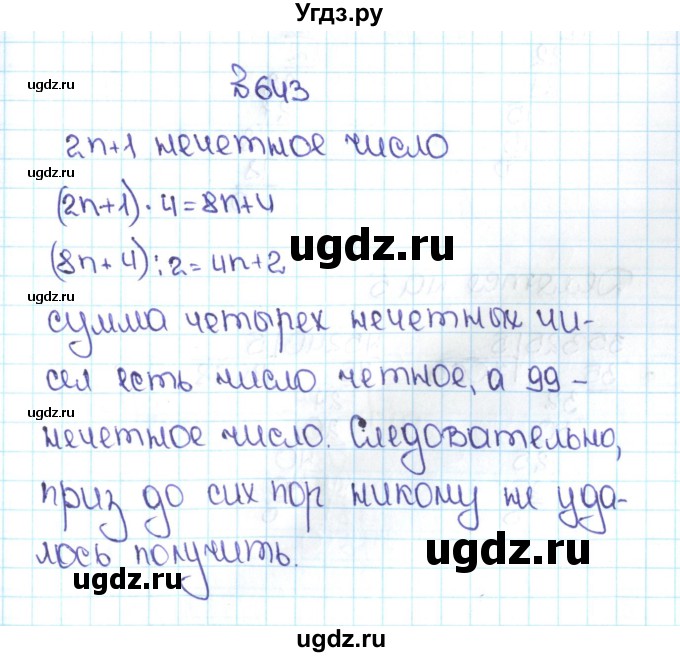 Угдз.ру
ugdz.ru
№643
2n+1 нечетное число
ugdz.ru
(2n+1)·4=8n+4
ugdz.ru
(8n+4):2=4n+2
ugdz.ru
сумма четырех нечетных чи-
сел есть число четное, а 99-
ugdz.ru
нечетное число. Следовательно,
приз до сих пор никому не уда-
лось получить.
ugdz.ru
ugdz.ru
ugdz.ru